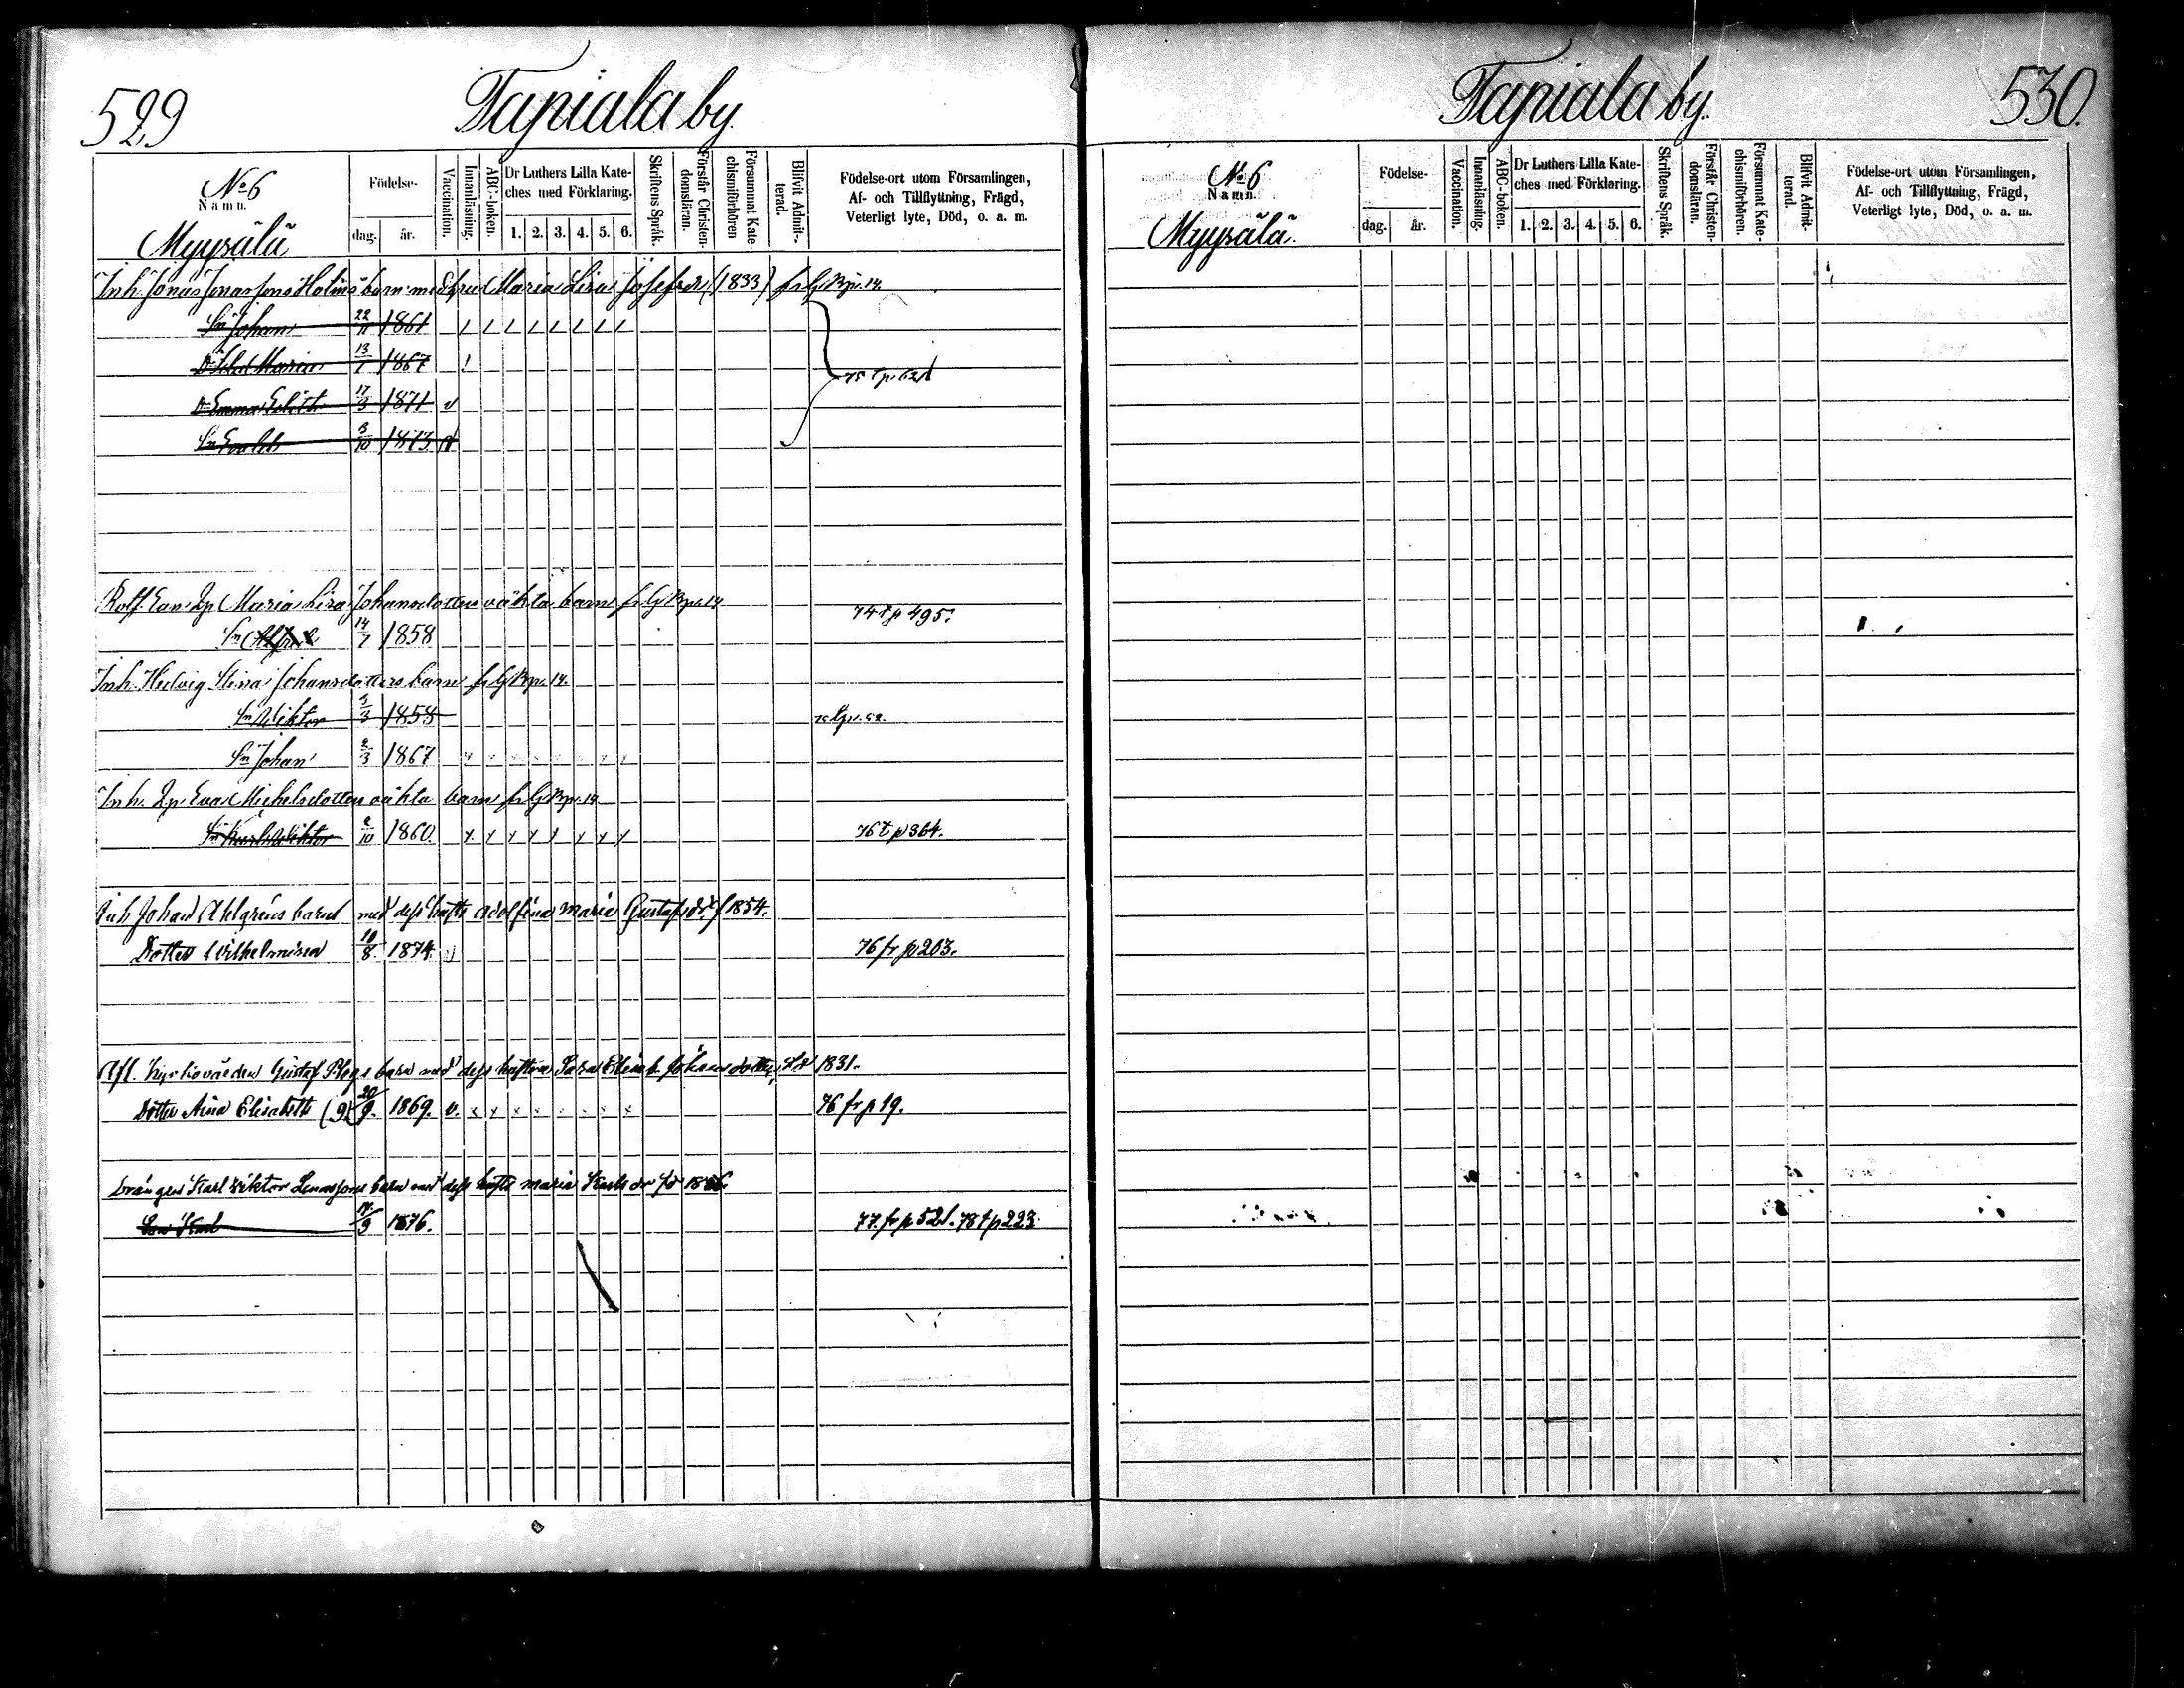 529
Tapiala by.
No 6
Namn.
Myysälä
Födelse-
dag.
år.
Vaccination.
Innanläsning.
ABC-boken.
Dr Luthers Lilla Kate-
ches med Förklaring.
1. 2. 3. 4. 5. 6.
Skriftens Språk.
Förstår Christen-
domsläran.
Försummat Kate-
chismiförhören
Blifvit Admit-
terad.
Födelse-ort utom Församlingen,
Af- och Tillflyttning, Frägd,
Veterligt lyte, Död, o. a. m.
Inh. Jonas Jonassons barn med Maria Lisa Josefsdr (1833)
Sn Johan 22/11 1861
Maria 13/7 1867
Dr Emma 17/3 1871 v
Sn 3/10 1873
Maria Lisa Johansdotters oäkta barn
74 t p 495.
Sn 14/7 1858
Inh. Hedvig Stina Johansdotters barn
Sn Wiktor 5/3 1858
Sn Johan 2/3 1867
Inh. Qp. Eva Michelsdotters oäkta barn
Sn Karl Wiktor 2/10 1860. 76 t p 364.
Inh Johan Ahlgrens barn med dess hustru Adolfina Maria Gustafsdr f 1854.
Dotter Wilhelmina 10/8. 1874. v 76 fr p 203.
Afl. Kyrkovärden Gustaf barn med dess hustru Sara Elisab. Johansdotter, 1831.
Dotter Aina Elisabeth (9) 20/9. 1869. v. 76 fr p 19.
Drängen Karl Viktor barn med dess hustru Maria Karlsdr
Son Karl 1876. 77. fr p 521. 78 t p 223.
Tapiala by.
530.
No 6
Namn.
Myysälä.
Födelse-
dag.
år.
Vaccination.
Innanläsning.
ABC-boken.
Dr Luthers Lilla Kate-
ches med Förklaring.
1. 2. 3. 4. 5. 6.
Skriftens Språk.
Förstår Christen-
domsläran.
Försummat Kate-
chismiförhören.
Blifvit Admit-
terad.
Födelse-ort utom Församlingen,
Af- och Tillflyttning, Frägd,
Veterligt lyte, Död, o. a. m.